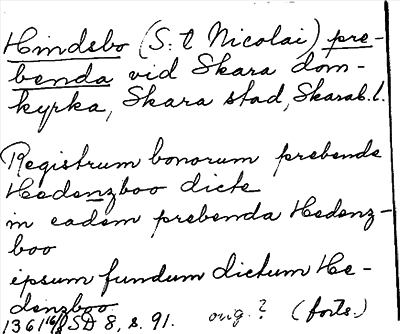 Hindsbo (S:t Nicolai) pre-
benda vid Skara dom-
kyrka, Skara stad, Skarab. l.
Registrum bonorum prebende
Hedenzboo dicte
in eadem prebenda Hedenz-
boo
ipsum fundum dictum He-
denzboo
1361 16/8 SD 8, s. 91. orig.? (forts.)